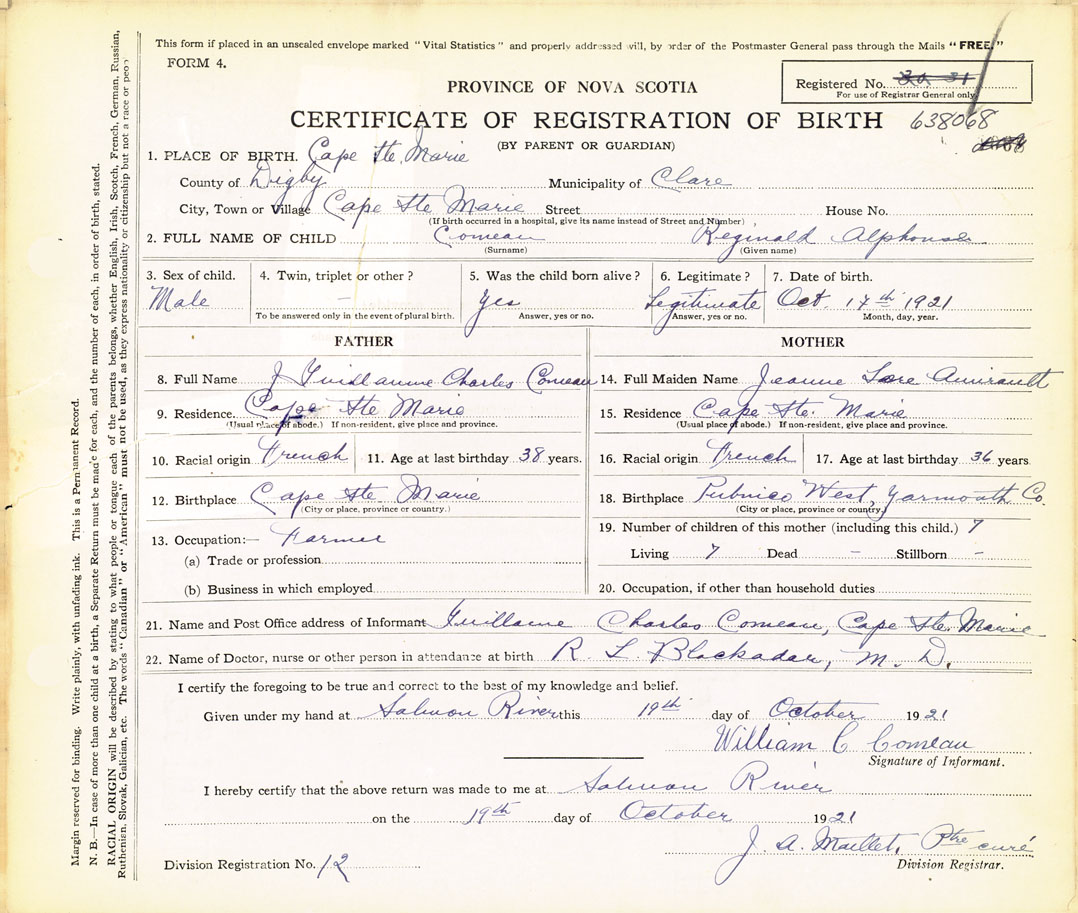 This form if placed in an unsealed envelope marked "Vital Statistics" and properly addressed will, by order of the Postmaster General pass through the Mails "FREE."
FORM 4.
Registered No.
For use of Registrar General only.
PROVINCE OF NOVA SCOTIA
CERTIFICATE OF REGISTRATION OF BIRTH 638068
(BY PARENT OR GUARDIAN)
1. PLACE OF BIRTH. Cape Ste. Marie
County of Digby Municipality of Clare
City, Town or Village Cape Ste Marie Street House No.
(If birth occurred in a hospital, give its name instead of Street and Number)
2. FULL NAME OF CHILD Comeau Reginald Alphonse
(Surname) (Given name)
3. Sex of child. 4. Twin, triplet or other? 5. Was the child born alive? 6. Legitimate? 7. Date of birth.
Male - Yes Legitimate Oct 17th 1921
To be answered only in the event of plural birth. Answer, yes or no. Answer, yes or no. Month, day, year.
FATHER
8. Full Name J Guillaume Charles Comeau
9. Residence. Cape Ste Marie
(Usual place of abode.) If non-resident, give place and province.
10. Racial origin French 11. Age at last birthday 38 years.
12. Birthplace Cape Ste. Marie
(City or place, province or country.)
13. Occupation:— Farmer
(a) Trade or profession
(b) Business in which employed
MOTHER
14. Full Maiden Name Jeanne Amirault
15. Residence Cape Ste. Marie
(Usual place of abode.) If non-resident, give place and province.
16. Racial origin French 17. Age at last birthday 36 years
18. Birthplace Pubnico West, Yarmouth Co.
(City or place, province or country.)
19. Number of children of this mother (including this child.) 7
Living 7 Dead - Stillborn -
20. Occupation, if other than household duties
21. Name and Post Office address of Informant Guillaume Charles Comeau, Cape Ste. Marie
22. Name of Doctor, nurse or other person in attendance at birth R. L. Blackadar, M. D.
I certify the foregoing to be true and correct to the best of my knowledge and belief.
Given under my hand at Salmon River this 19th day of October 1921
William C Comeau
Signature of Informant.
I hereby certify that the above return was made to me at Salmon River
on the 19th day of October 1921
J. A. Maillet, Ptre curé
Division Registration No. 12 Division Registrar.
Margin reserved for binding. Write plainly, with unfading ink. This is a Permanent Record.
N. B.—In case of more than one child at a birth, a Separate Return must be made for each, and the number of each, in order of birth, stated.
RACIAL ORIGIN will be described by stating to what people or tongue each of the parents belongs, whether English, Irish, Scotch, French, German, Russian,
Ruthenian, Slovak, Galician, etc. The words "Canadian" or "American" must not be used, as they express nationality or citizenship but not a race or peop